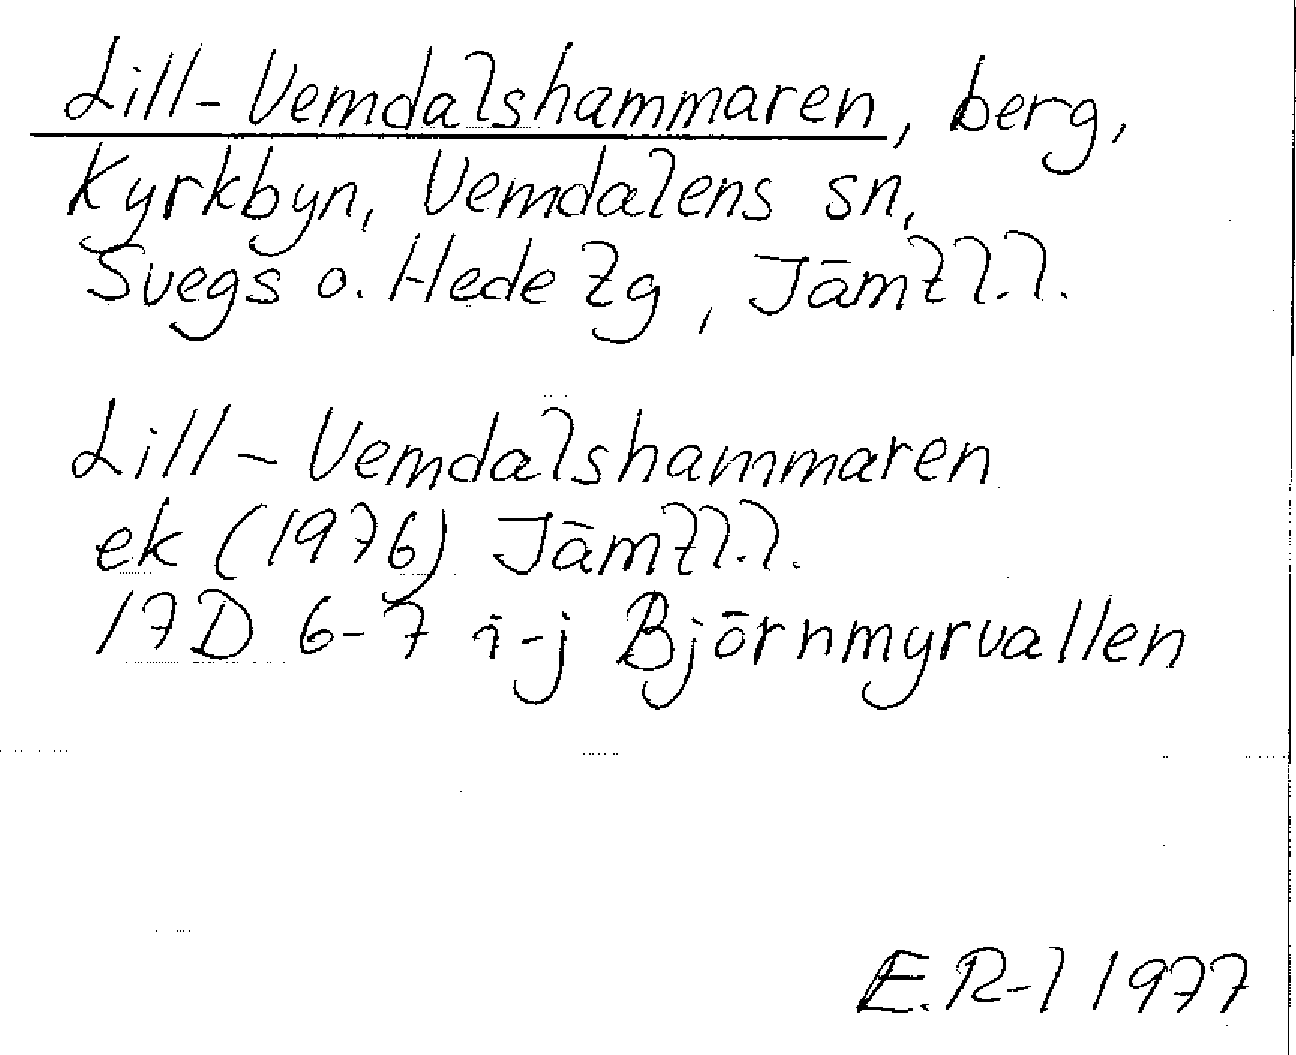 Lill-Vemdalshammaren, berg,
Kyrkbyn, Vemdalens sn,
Svegs o. Hede tg, Jämtl.l.
Lill-Vemdalshammaren
ek (1976) Jämtl.l.
17D 6-7 i-j Björnmyrvallen
E.R-l 1977